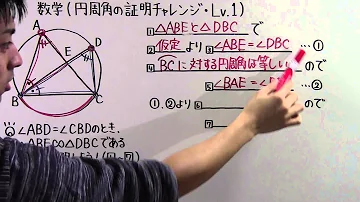 数学(円周角の証明チャレンジ・Lv.1)
A
D
E
B
C
∠ABD=∠CBDのとき、
△ABE∽△DBCである
1 △ABEと△DBC で
2 仮定 より 3 ∠ABE=∠DBC …①
4 BCに対する円周角は等しい ので
5 ∠BAE=∠ …②
①、②より 6 ので
7